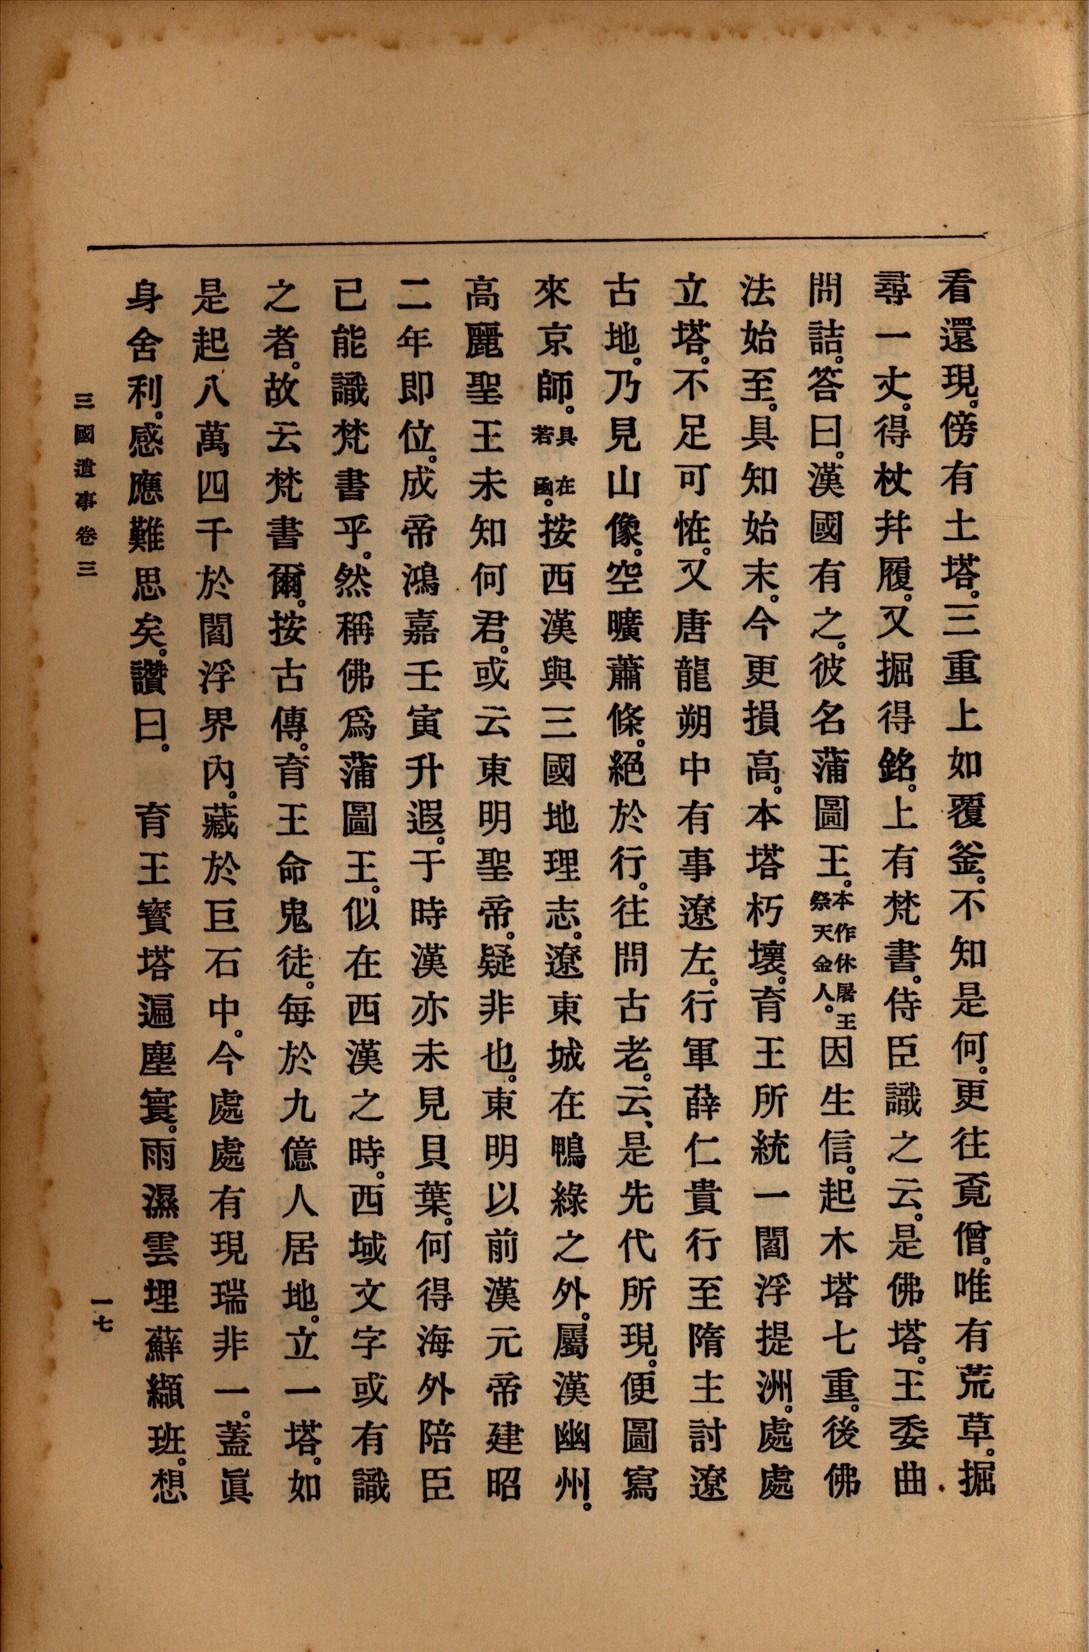 看還現。傍有土塔。三重上如覆釜。不知是何。更往覓僧。唯有荒草。掘
尋一丈。得杖幷履。又掘得銘。上有梵書。侍臣識之云。是佛塔。王委曲
問詰。答曰。漢國有之。彼名蒲圖王。本作休屠王祭天金人。因生信。起木塔七重。後佛
法始至。具知始末。今更損高。本塔朽壞。育王所統一閻浮提洲。處處
立塔。不足可恠。又唐龍朔中有事遼左。行軍薛仁貴行至隋主討遼
古地。乃見山像。空曠蕭條。絕於行。往問古老。云、是先代所現。便圖寫
來京師。具在若函。按西漢與三國地理志。遼東城在鴨綠之外。屬漢幽州。
高麗聖王未知何君。或云東明聖帝。疑非也。東明以前漢元帝建昭
二年即位。成帝鴻嘉壬寅升遐。于時漢亦未見貝葉。何得海外陪臣
已能識梵書乎。然稱佛爲蒲圖王。似在西漢之時。西域文字或有識
之者。故云梵書爾。按古傳。育王命鬼徒。每於九億人居地。立一塔。如
是起八萬四千於閻浮界內。藏於巨石中。今處處有現瑞非一。蓋眞
身舍利。感應難思矣。讚曰。　育王寶塔遍塵寰。雨濕雲埋蘚纈班。想
三國遺事卷三
一七